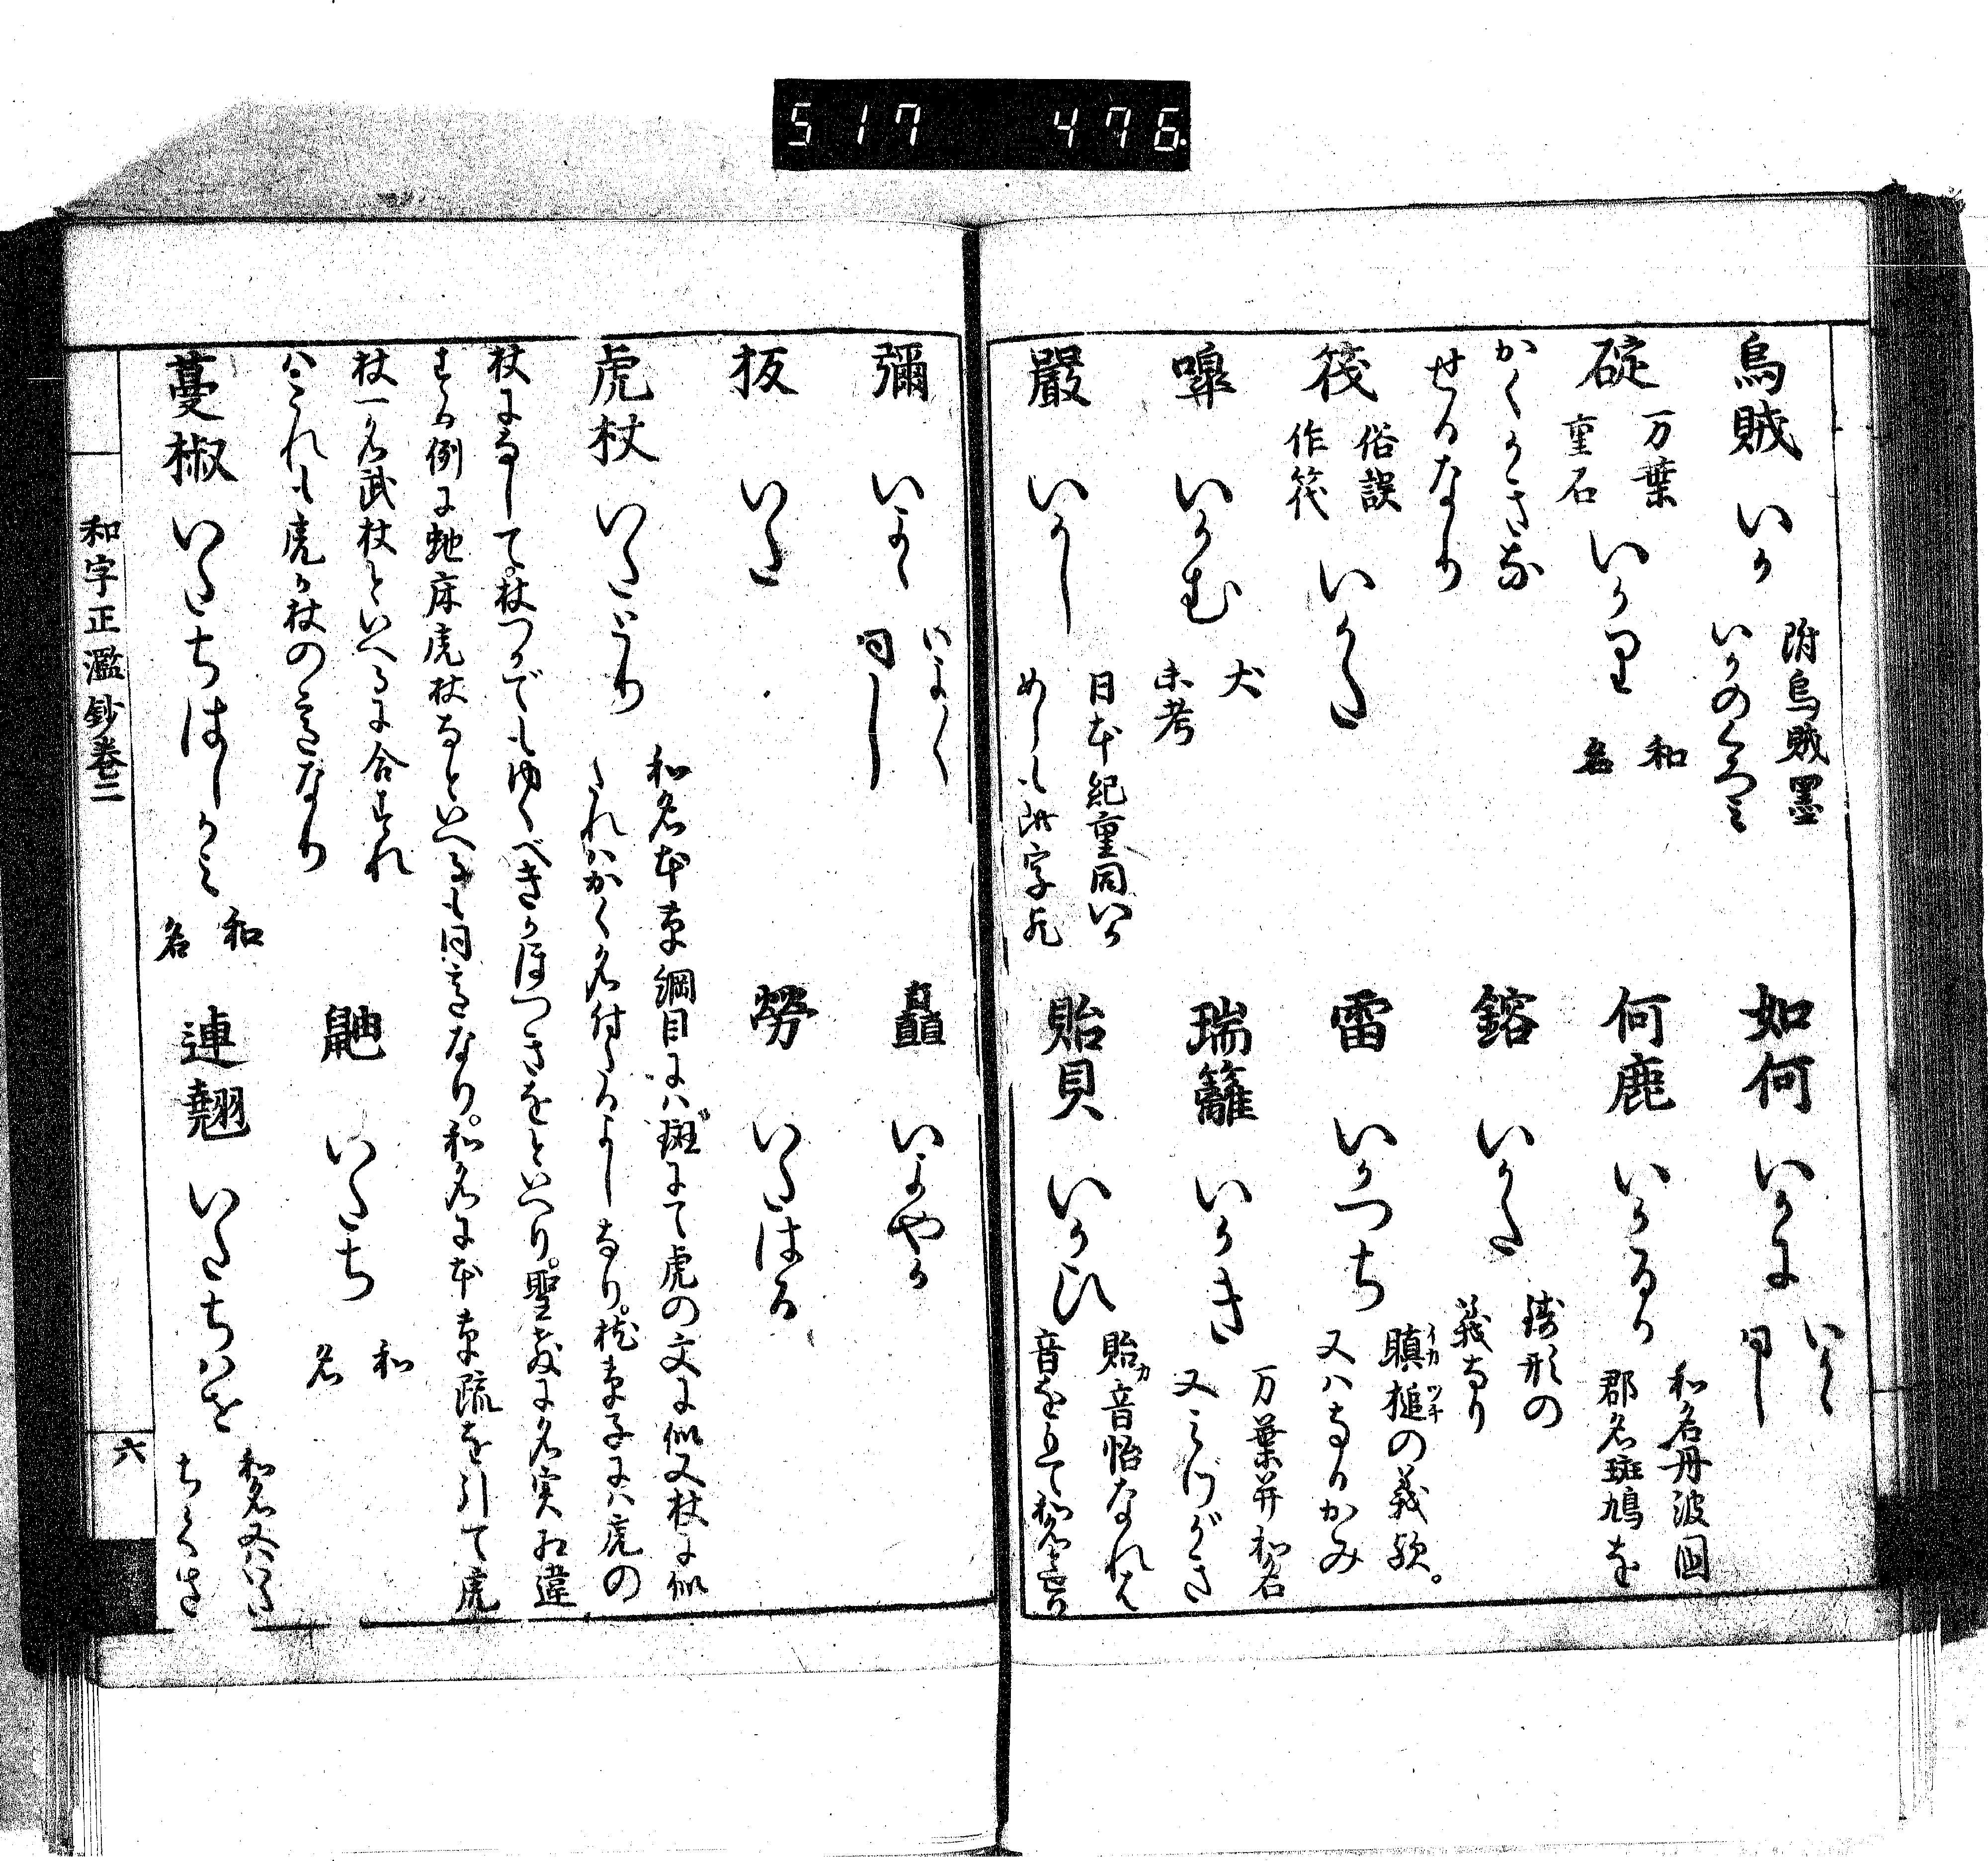 517 476.
烏賊 いか 附烏賊墨
いかのくろみ
如何 いかに いかゝ
同し
碇 万葉
重石 いかり 和
名
何鹿 いかるか 和名丹波国
郡名斑鳩を
かくかきな
せるなり
鎔 いかた 鋳形の
義なり
筏 俗誤
作筏 いかた
雷 いかつち 瞋槌の義歟。
イカ ツチ
又ハなるかみ
嘷 いかむ 犬
未考
瑞籬 いかき 万葉并和名
又みづがき
嚴 いかし 日本紀重同いか
めしも此字
貽貝 いかひ 貽音怡なれと
音をもて和名
彌 いよゝ いよ〱
同し
矗 いよやか
板 いた
勞 いたはる
虎杖 いたとり 和名本草綱目にハ斑にて虎の文に似又杖に似
たれハかく名付るよしなり。枕草子にハ虎の
杖になして。杖つかでもゆくべきかほつきをといへり。聖教に名実相違
する例に虵床虎杖なといへるも同意なり。和名に本草疏を引て虎
杖一名武杖といへるに合すれ
ハこれも虎か杖の意なり
鼬 いたち 和
名
蔓椒 いたちはしかみ 和
名
連翹 いたちハせ 和名又ハいた
ちくさ
和字正濫鈔巻二
六